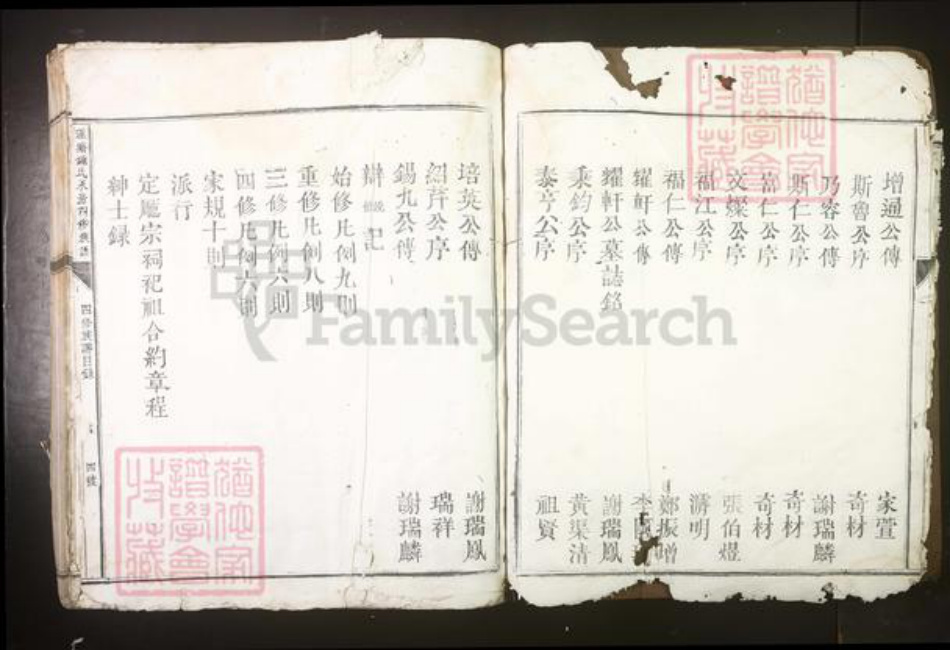 增通公傳 家萱
斯魯公序 奇材
乃容公傳 謝瑞麟
斯仁公序 奇材
富仁公序 奇材
文燦公序 張伯煜
福江公序 溥明
福仁公傳 鄭振
耀軒公傳 李
耀軒公墓誌銘 謝瑞鳳
秉鈞公序 黃渠清
泰亨公序 祖賢
培英公傳 謝瑞鳳
紹芹公序 瑞祥
錫九公傳 謝瑞麟
辯記
始修凡例九則
重修凡例八則
三修凡例六則
四修凡例六則
家規十則
派行
定應宗祠祀祖合約章程
紳士錄
四修族譜目錄
四號
FamilySearch
譜學會
收藏
譜學會
收藏